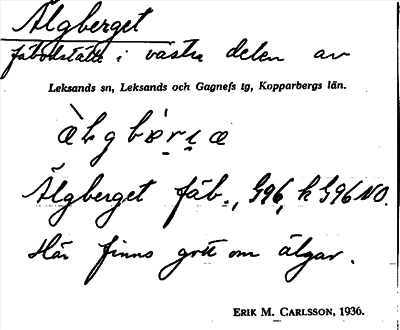 Älgberget
fäbodställe i västra delen av
Leksands sn, Leksands och Gagnefs tg, Kopparbergs län.
Älgberget fäb., G96, k G96 NO.
Här finns gott om älgar.
ERIK M. CARLSSON, 1936.